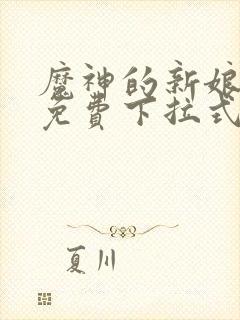 魔神的新娘
免費下拉式
夏川